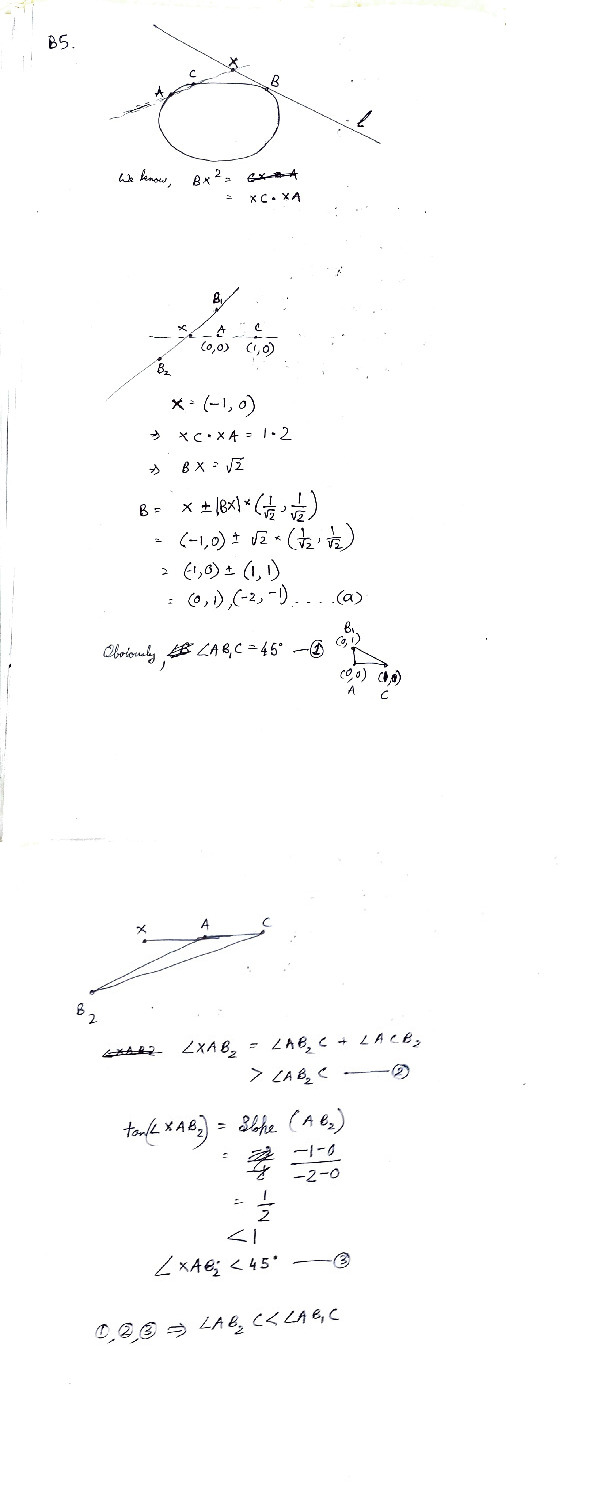 B5.
C X B
A
l
We know, BX² =
= XC · XA
B₁
X A C
(0,0) (1,0)
B₂
X = (-1, 0)
⇒ XC · XA = 1·2
⇒ BX = √2
B = X ± |BX| × (1/√2, 1/√2)
= (-1,0) ± √2 × (1/√2, 1/√2)
= (-1,0) ± (1,1)
= (0,1), (-2,-1) .... (a)
Obviously, ∠AB₁C = 45° — ①
B₁
(0,1)
(0,0)
A C
X A C
B₂
∠XAB₂ = ∠AB₂C + ∠ACB₂
> ∠AB₂C — ②
tan(∠XAB₂) = Slope (AB₂)
= -1-0/-2-0
= 1/2
< 1
∠XAB₂ < 45° — ③
①,②,③ ⇒ ∠AB₂C < ∠AB₁C